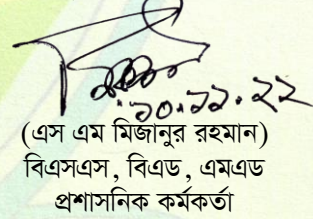 ২০.১১.২২
(এস এম মিজানুর রহমান)
বিএসএস, বিএড, এমএড
প্রশাসনিক কর্মকর্তা